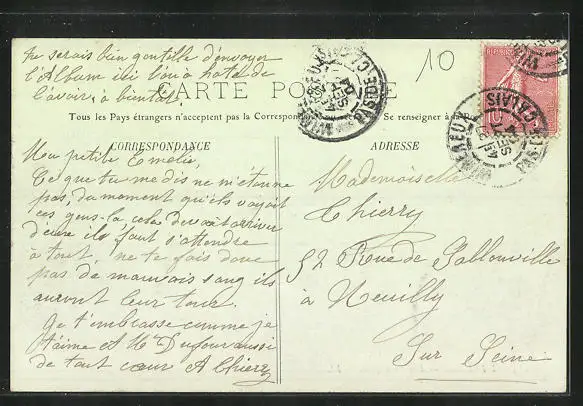 tu serais bien gentille d'envoyer
l'Album ici l'on a hâte de
l'avoir, à bientôt
10
CARTE POSTALE
Tous les Pays étrangers n'acceptent pas la Correspon Se renseigner à
CORRESPONDANCE
ADRESSE
Ma petite Emélie,
Ce que tu me dis ne m'étonne
pas, du moment qu'ils voyait
ces gens-là cela devait arriver
d'eux il faut s'attendre
à tout, ne te fais donc
pas de mauvais sang ils
auront leur tour.
Je t'embrasse comme je
t'aime et Mr Dufour aussi
de tout cœur A Thierry
Mademoiselle
Thierry
52 Rue de Sablonville
à Neuilly
Sur Seine
WIMEREUX
PAS-DE-CALAIS
WIMEREUX
PAS-DE-CALAIS
10